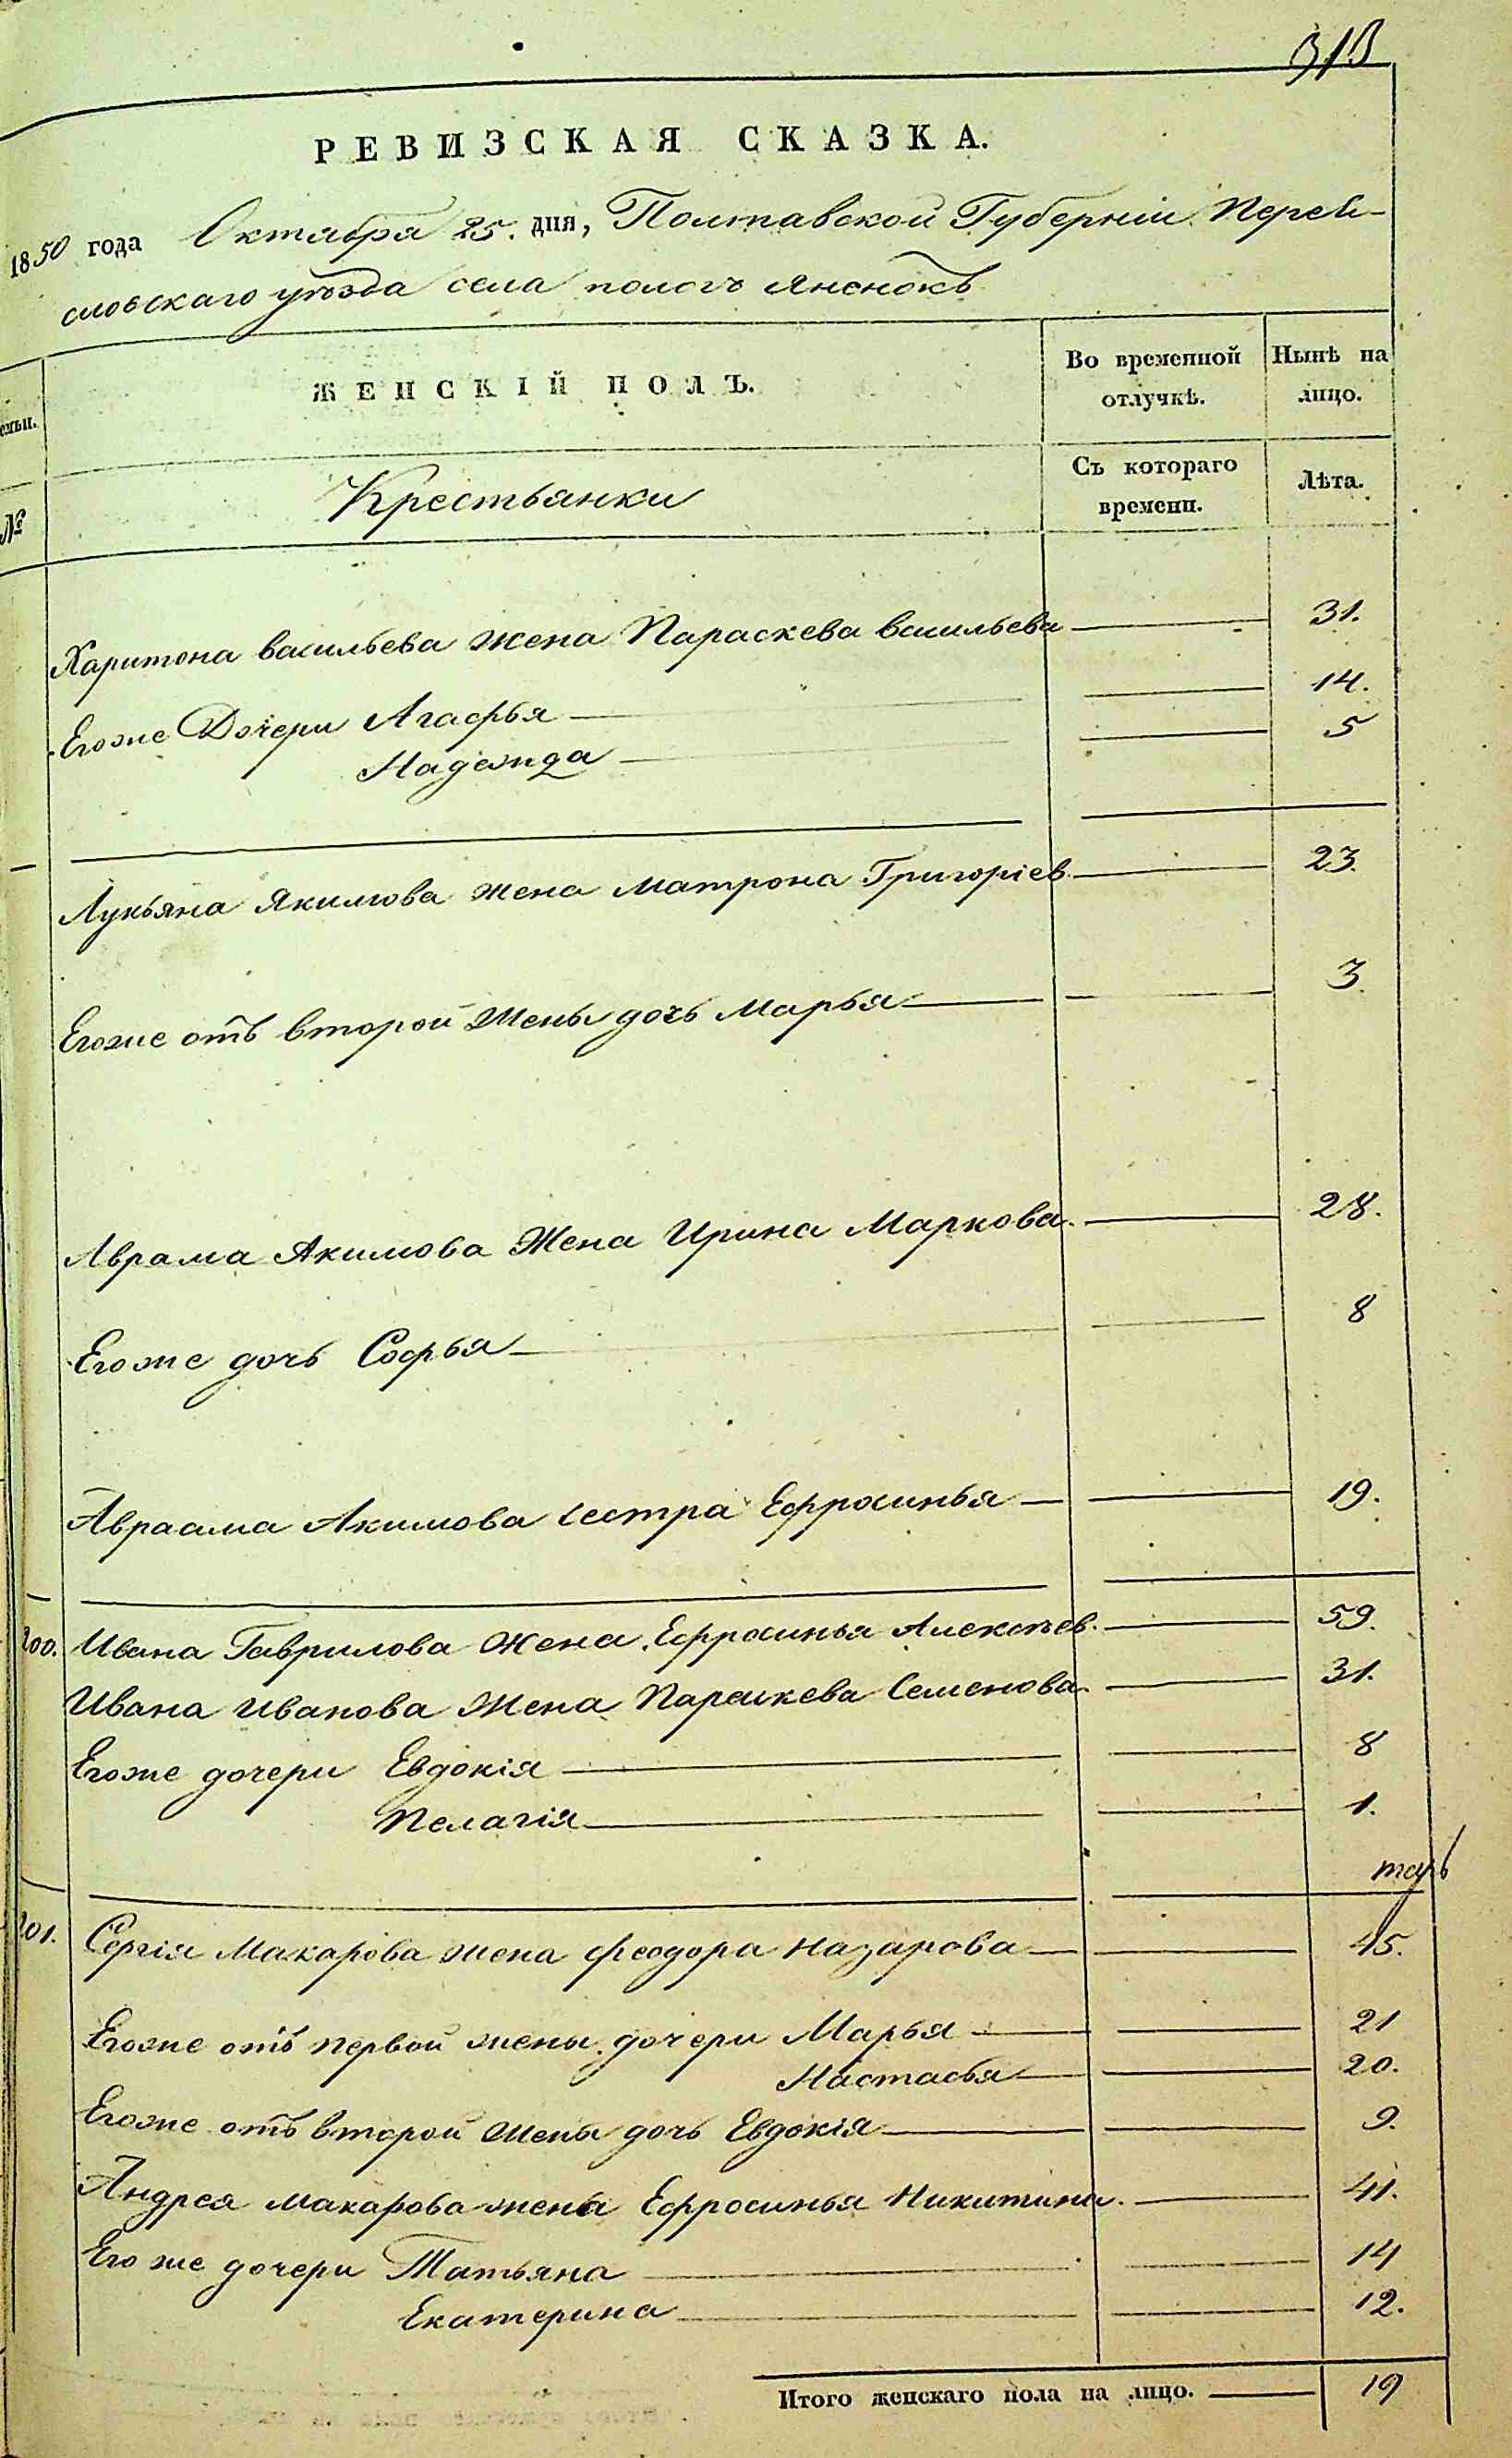 313
РЕВИЗСКАЯ СКАЗКА.
1850 года Октября 25. дня, Полтавской Губерніи Перея-
словскаго уѣзда села пологъ Яненокъ
ЖЕНСКІЙ ПОЛЪ.
Во временной отлучкѣ.
Нынѣ на лицо.
№
Крестьянки
Съ котораго времени.
Лѣта.
Харитона васильева жена Параскева васильева 31.
Егоже Дочери Агафья 14.
Надежда 5
Лукьяна Якимова жена Матрона Григоріев. 23.
Егоже отъ второй жены дочь Марья 3
Аврама Акимова Жена Ирина Маркова. 28.
Егоже дочь Софья 8
Авраама Акимова сестра Ефросинья 19.
200. Ивана Гаврилова жена Ефросинья Алексѣев. 59.
Ивана Иванова жена Параскева Семенова. 31.
Егоже дочери Евдокія 8
Пелагія 1.
201. Сергія Макарова жена феодора Назарова 45.
Егоже отъ первой жены дочери Марья 21
Настасья 20.
Егоже отъ второй жены дочь Евдокія 9.
Андрея Макарова жена Ефросинья Никитина. 41.
Его же дочери Татьяна 14
Екатерина 12.
Итого женскаго пола на лицо. 19